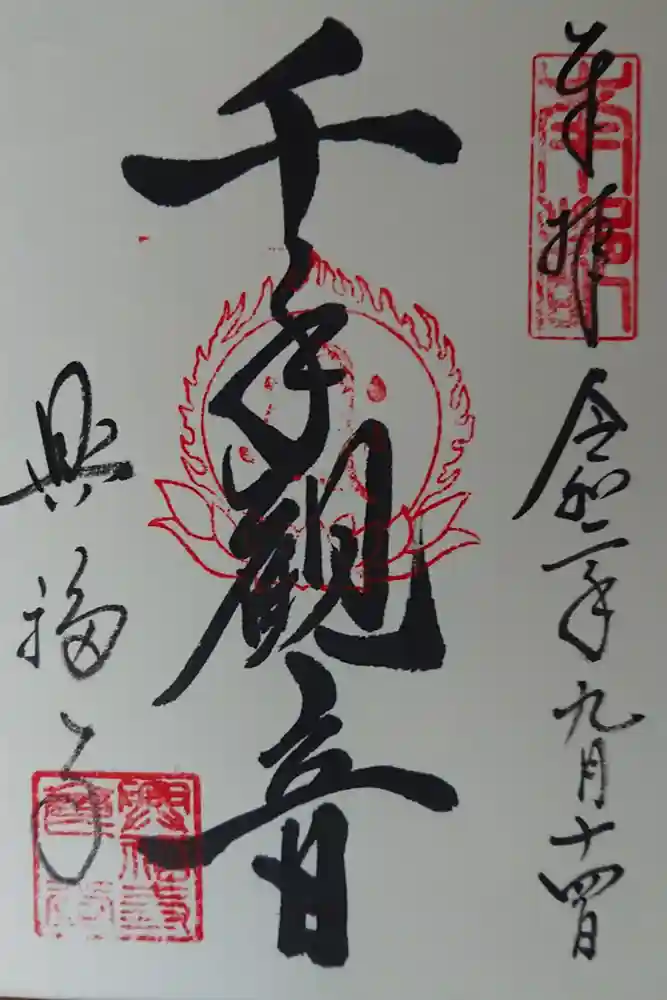 奉拝
令和二年九月十四日
千手觀音
興福寺